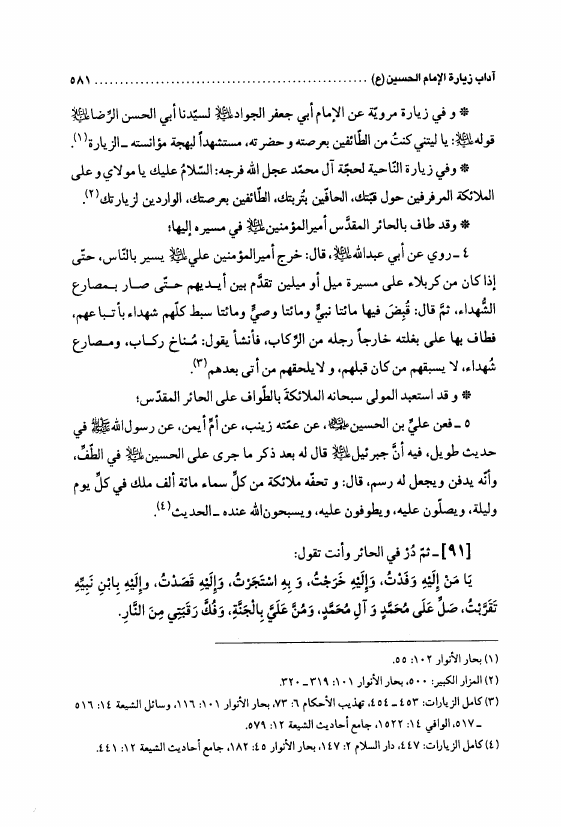 آداب زيارة الإمام الحسين (ع) ........................................................ ٥٨١
* و في زيارة مرويّة عن الإمام أبي جعفر الجواد لسيّدنا أبي الحسن الرّضا
قوله: يا ليتني كنتُ من الطّائفين بعرصته و حضرته، مستشهداً لبهجة مؤانسته ـ الزيارة (١).
* وفي زيارة النّاحية لحجّة آل محمّد عجل الله فرجه: السّلامُ عليك يا مولاي و على
الملائكة المرفرفين حول قبّتك، الحافّين بتُربتك، الطّائفين بعرصتك، الواردين لزيارتك (٢).
* وقد طاف بالحائر المقدّس أميرالمؤمنين في مسيره إليها؛
٤ ـ روي عن أبي عبدالله، قال: خرج أميرالمؤمنين علي يسير بالنّاس، حتّى
إذا كان من كربلاء على مسيرة ميل أو ميلين تقدَّم بين أيديهم حتّى صار بمصارع
الشُّهداء، ثمَّ قال: قُبِضَ فيها مائتا نبيٍّ ومائتا وصيٍّ ومائتا سبط كلّهم شهداء بأتباعهم،
فطاف بها على بغلته خارجاً رجله من الرِّكاب، فأنشأ يقول: مُناخ ركاب، ومصارع
شُهداء، لا يسبقهم من كان قبلهم، و لايلحقهم من أتى بعدهم (٣).
* و قد استعبد المولى سبحانه الملائكةَ بالطّواف على الحائر المقدّس؛
٥ ـ فعن عليِّ بن الحسين، عن عمّته زينب، عن أمِّ أيمن، عن رسول الله في
حديث طويل، فيه أنَّ جبرئيل قال له بعد ذكر ما جرى على الحسين في الطّفِّ،
وأنّه يدفن ويجعل له رسم، قال: و تحفّه ملائكة من كلِّ سماء مائة ألف ملك في كلِّ يوم
وليلة، ويصلّون عليه، ويطوفون عليه، ويسبحون الله عنده ـ الحديث (٤).
[٩١] ـ ثمّ دُرْ في الحائر وأنت تقول:
يَا مَنْ إِلَيْهِ وَفَدْتُ، وَإِلَيْهِ خَرَجْتُ، وَ بِهِ اسْتَجَرْتُ، وَإِلَيْهِ قَصَدْتُ، وإِلَيْهِ بِابْنِ نَبِيِّهِ
تَقَرَّبْتُ، صَلِّ عَلَى مُحَمَّدٍ وَ آلِ مُحَمَّدٍ، وَمُنَّ عَلَيَّ بِالْجَنَّةِ، وَفُكَّ رَقَبَتِي مِنَ النَّارِ.
(١) بحار الأنوار ١٠٢: ٥٥.
(٢) المزار الكبير: ٥٠٠، بحار الأنوار ١٠١: ٣١٩ ـ ٣٢٠.
(٣) كامل الزيارات: ٤٥٣ ـ ٤٥٤، تهذيب الأحكام ٦: ٧٣، بحار الأنوار ١٠١: ١١٦، وسائل الشيعة ١٤: ٥١٦
ـ ٥١٧، الوافي ١٤: ١٥٢٢، جامع أحاديث الشيعة ١٢: ٥٧٩.
(٤) كامل الزيارات: ٤٤٧، دار السلام ٢: ١٤٧، بحار الأنوار ٤٥: ١٨٢، جامع أحاديث الشيعة ١٢: ٤٤١.